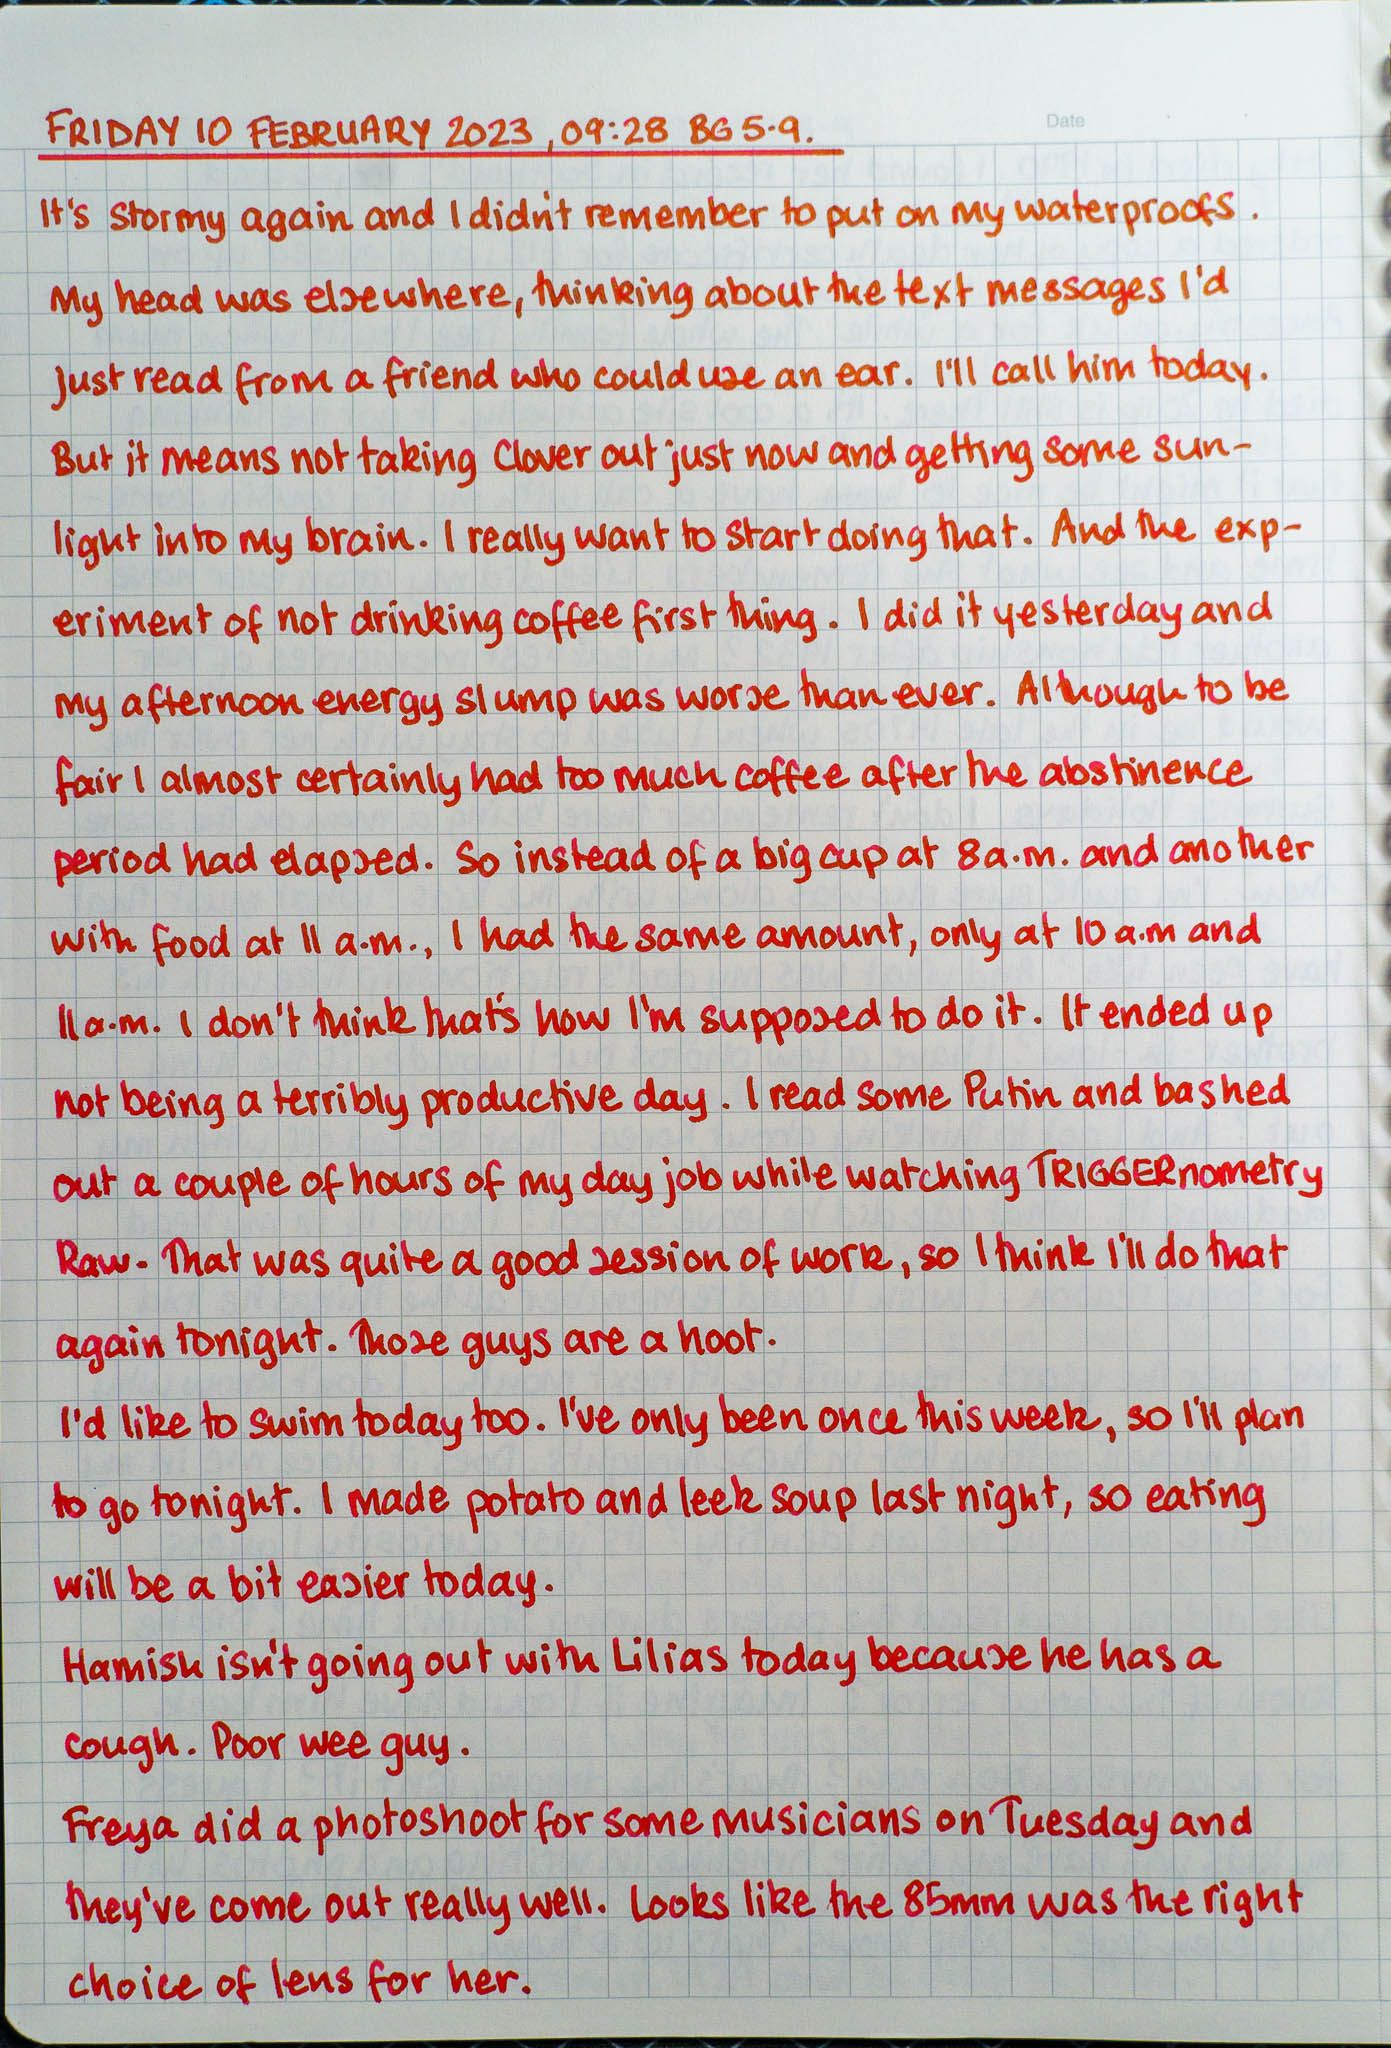 Date
FRIDAY 10 FEBRUARY 2023, 09:28 BG 5.9.
It's stormy again and I didn't remember to put on my waterproofs.
My head was elsewhere, thinking about the text messages I'd
just read from a friend who could use an ear. I'll call him today.
But it means not taking Clover out just now and getting some sun-
light into my brain. I really want to start doing that. And the exp-
eriment of not drinking coffee first thing. I did it yesterday and
my afternoon energy slump was worse than ever. Although to be
fair I almost certainly had too much coffee after the abstinence
period had elapsed. So instead of a big cup at 8 a.m. and another
with food at 11 a.m., I had the same amount, only at 10 a.m and
11 a.m. I don't think that's how I'm supposed to do it. It ended up
not being a terribly productive day. I read some Putin and bashed
out a couple of hours of my day job while watching TRIGGERnometry
Raw. That was quite a good session of work, so I think I'll do that
again tonight. Those guys are a hoot.
I'd like to swim today too. I've only been once this week, so I'll plan
to go tonight. I made potato and leek soup last night, so eating
will be a bit easier today.
Hamish isn't going out with Lilias today because he has a
cough. Poor wee guy.
Freya did a photoshoot for some musicians on Tuesday and
they've come out really well. Looks like the 85mm was the right
choice of lens for her.